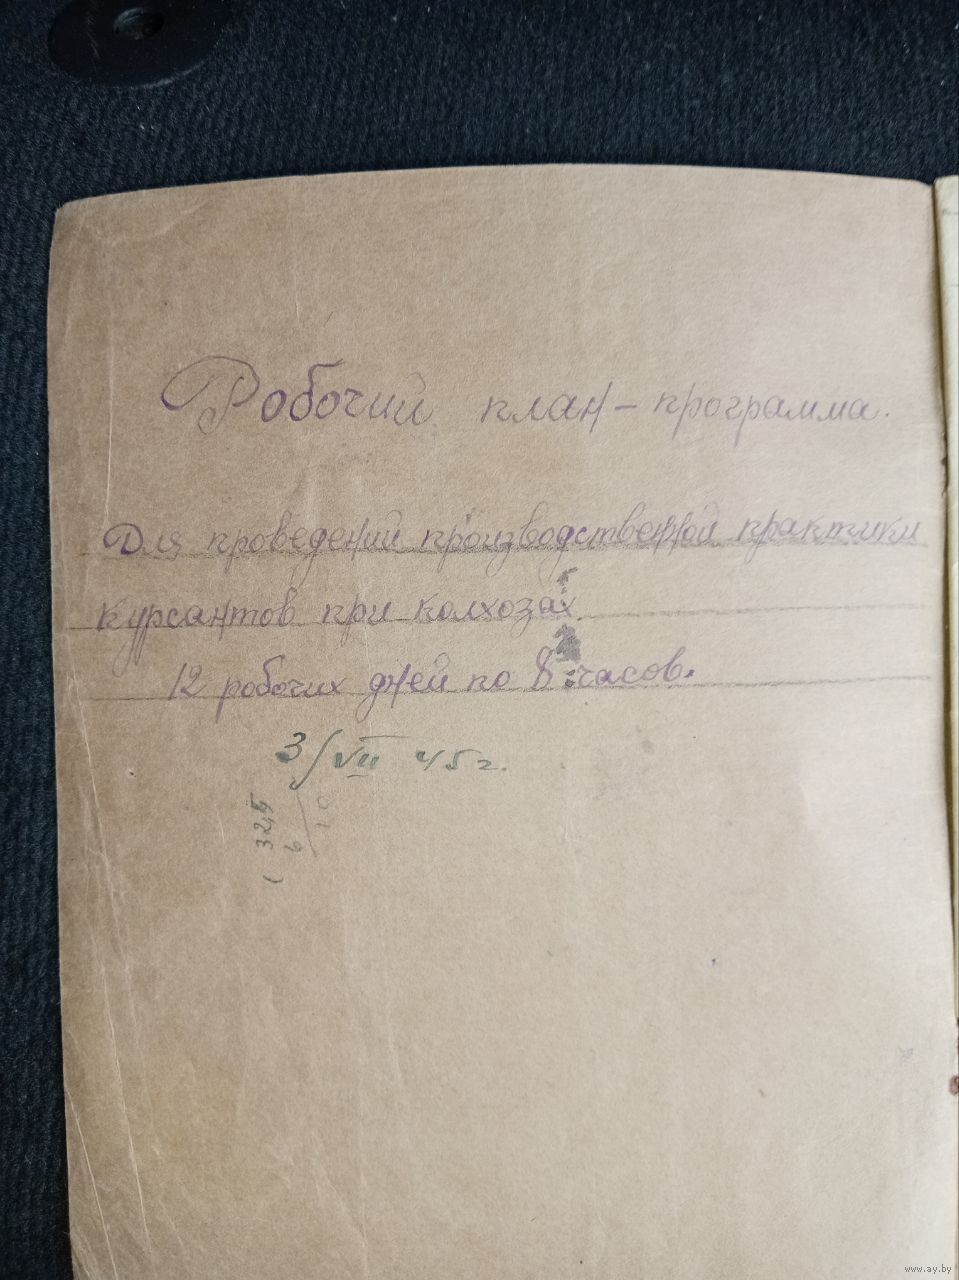 Робочий план - программа.
Для проведений производственной практики
курсантов при колхозах.
12 робочих дней по 8 часов.
3/VII 45 г.
www.ay.by